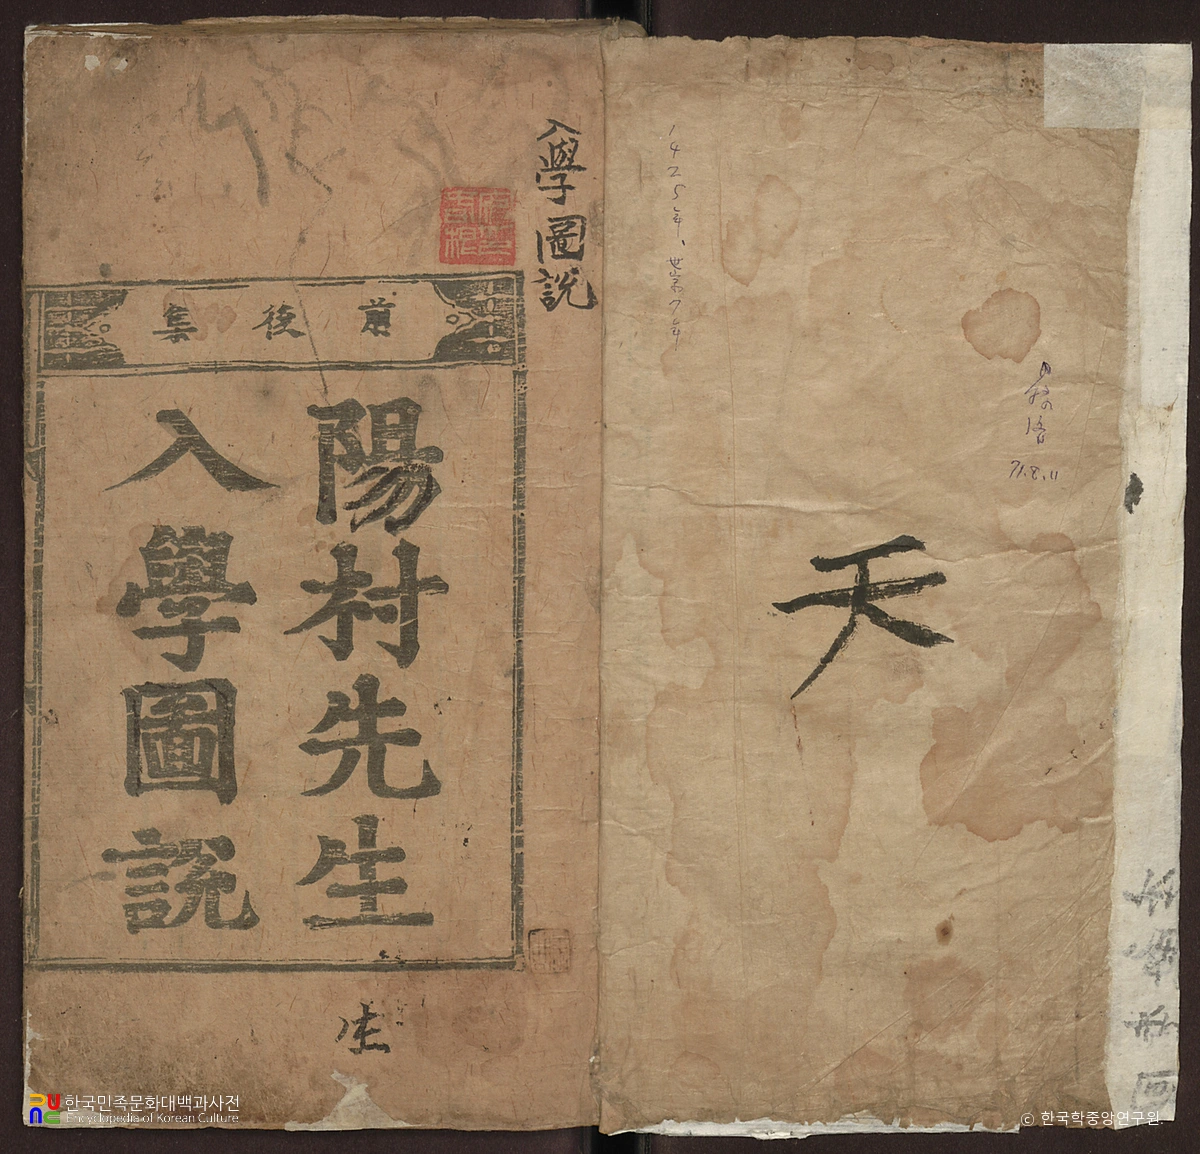 1425年、世宗7年
71.8.11
天
入學圖說
前後集
陽村先生
入學圖說
生
한국민족문화대백과사전
Encyclopedia of Korean Culture
ⓒ 한국학중앙연구원